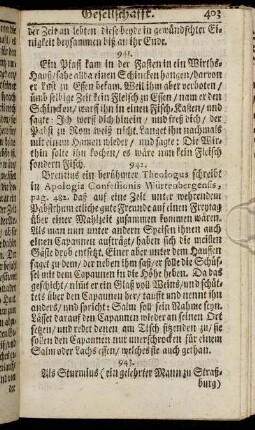 Gesellschafft. 403
der Zeit an lebten diese beyde in gewündschter Ei-
nigkeit beysammen biß an ihr Ende.
941.
Ein Pfaff kam in der Fasten in ein Wirths-
Hauß/sahe allda einen Schincken hangen/darvon
er Lust zu Essen bekam. Weil ihm aber verboten/
umb selbige Zeit kein Fleisch zu Essen/nam er den
Schincken/warff ihn in einen Fisch-Kasten/und
sagte: Ich werff dich hinein/und freß dich/der
Pabst zu Rom weiß nicht. Langet ihn nachmals
mit einem Hamen wieder/und sagte: Die Wir-
thin solte ihn kochen/es wäre nun kein Fleisch
sondern Fisch.
942.
Brentius ein berühmter Theologus schreibt
in Apologia Confessionis Würtenbergensis,
pag. 482. daß auf eine Zeit unter wehrendem
Pabstthum etliche gute Freunde an einem Freytag
über einer Mahlzeit zusammen kommen wären.
Als man nun unter andern Speisen ihnen auch
einen Capaunen aufträgt/haben sich die meisten
Gäste drob entsetzt. Einer aber unter dem Hauffen
sagt zu dem/der neben ihm saß/er solle die Schüs-
sel mit dem Capaunen in die Höhe heben. Da das
geschicht/nimt er ein Glaß voll Weins/und schüt-
tets über den Capaunen her/taufft und nennt ihn
anders/und spricht: Salm soll sein Nahme seyn.
Lässet darauf den Capaunen wieder an seinen Ort
setzen/und redet denen am Tisch sitzenden zu/sie
sollen den Capaunen nur unerschrocken für einem
Salm oder Lachs essen/welches sie auch gethan.
943.
Als Sturmius (ein gelehrter Mann zu Straß-
burg)